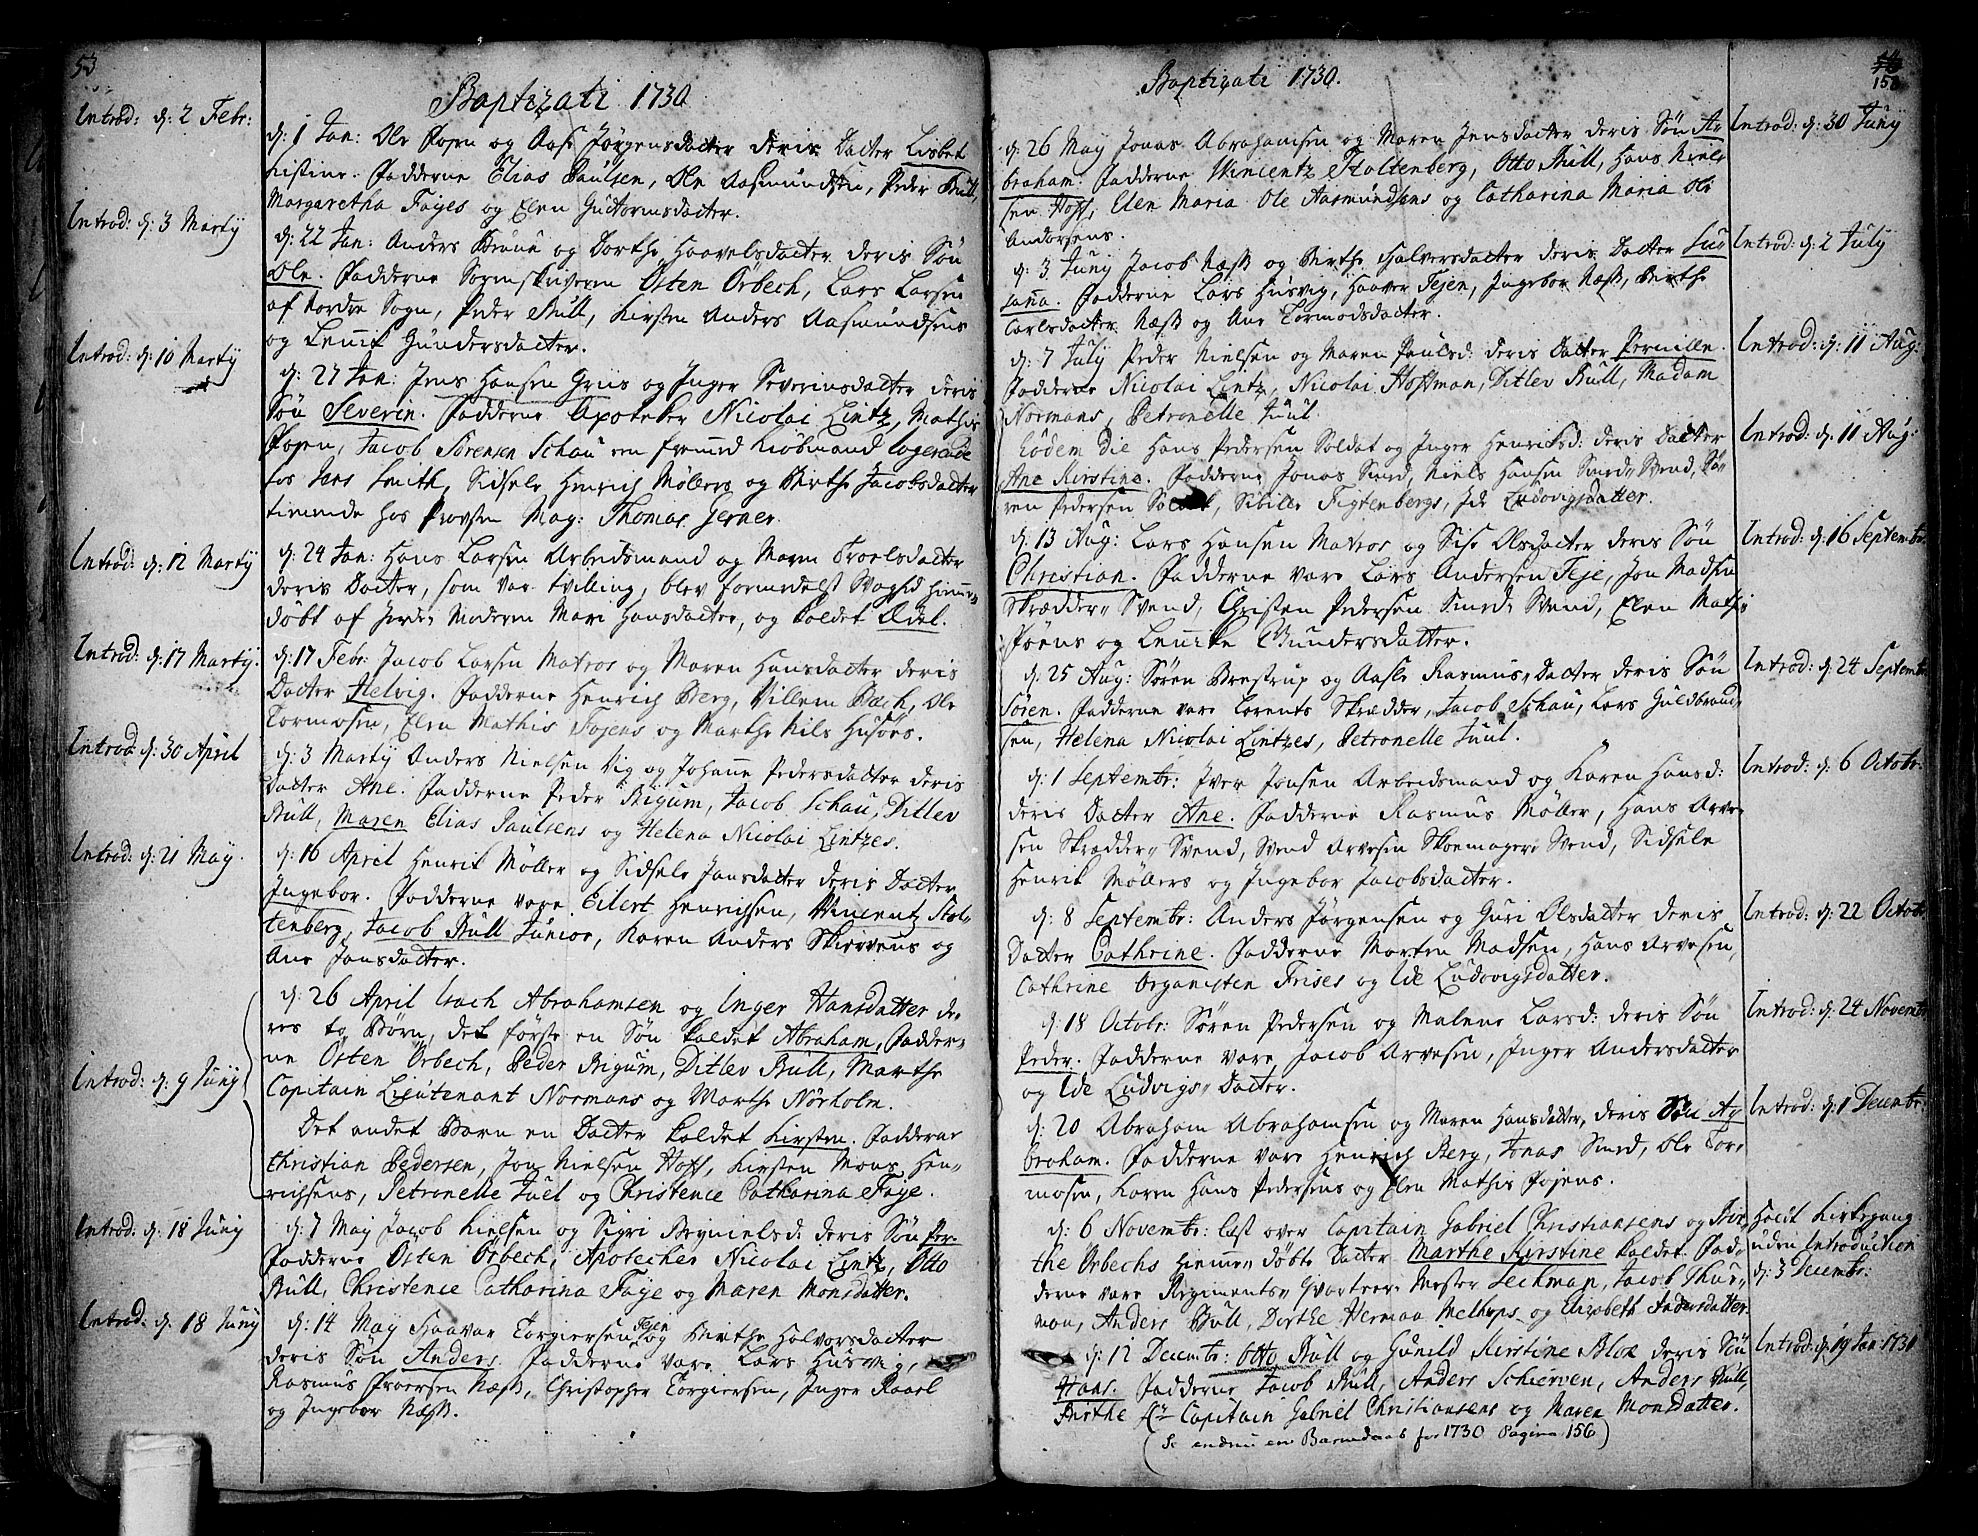 53
Baptizati 1730
Introd: d: 2 Febr:
d: 1 Jan: Ole Fojen og Aase Jørgensdatter deris Datter Lisbet
Kistine. Fadderne Elias Paulsen, Ole Aasmundsen, Peder Bull,
Margaretha Fayes og Elen Guttormsdatter.
Introd: d: 3 Martij
d: 22 Jan: Anders Bruun og Dorthe Haavelsdatter deris Søn
Ole. Fadderne Sorenskriveren Østen Ørbech, Lars Larsen
af Nordre Sogn, Peder Bull, Kirsten Anders Aasmundsens
og Lenike Gundersdatter.
Introd: d: 10 Martij
d: 27 Jan: Jens Hansen Griis og Inger Severinsdatter deris
Søn Severin. Fadderne Apoteker Nicolai Lintz, Mathis
Fojen, Jacob Sørensen Schau en fremmed Kiøbmand logerende
hos Jens Smith, Sidsele Hinrich Møllers og Birthe Jacobsdatter
tienende hos Provsten Mag: Thomas Gerner.
Introd: d: 12 Martij
d: 24 Jan: Hans Larsen Arbeidsmand og Maren Troelsdatter
deris Datter, som var tvilling, blev formedelst Svaghed hiemme-
døbt af Jorde-Moderen Mari Hansdatter, og kaldet Ædel.
Introd: d: 17 Martij.
d: 17 Febr: Jacob Larsen Matros og Maren Hansdatter deris
Datter Helvig. Fadderne Henrich Berg, Villem Bech, Ole
Tormosen, Elen Mathis Fojens og Marthe Nils Husøes.
Introd d: 30 April
d: 3 Martij Anders Nielsen Vig og Johanne Pedersdatter deris
Datter Ane. Fadderne Peder Rigum, Jacob Schau, Ditlev
Bull, Maren Elias Paulsens og Helena Nicolai Lintzes.
Introd: d: 21 May.
d: 16 April Henrik Møller og Sidsele Jansdatter deris Datter
Ingebor. Fadderne vare Eilert Henrichsen, Vincentz Stol-
tenberg, Jacob Bull Junior, Karen Anders Skirvens og
Ane Jansdatter.
d: 26 April Isach Abrahamsen og Inger Hansdatter de-
res to Børn, det første en Søn kaldet Abraham, Fadder-
ne Østen Ørbech, Peder Rigum, Ditlev Bull, Marthe
Introd: d: 9 Junij
Capitain Lieutenant Normans og Marthe Nørholm.
Det andet Barn en Datter kaldet Kirsten. Fadderne
Christian Pedersen, Jon Nielsen Hoff, Kirsten Mons Hen-
richsens, Petronelle Juel og Christence Catharina Faye.
Introd: d: 18 Junij
d: 7 May Jacob Nielsen og Sigri Brynielsd: deris Søn Per.
Fadderne Østen Ørbech, Apothecker Nicolai Lintz, Otto
Bull, Christence Catharina Faye og Maren Monsdatter.
Introd: d: 18 Junij
d: 14 May Haavar Torgiersen Tejen og Birthe Halvorsdatter
deris Søn Anders. Fadderne vare Lars Husvig,
Rasmus Proersen Næss, Christopher Torgiersen, Inger Raarl
og Ingebor Næss.
158
Baptizati 1730.
Introd: d: 30 Junij
d: 26 May Jonas Abrahamsen og Maren Jensdatter deris Søn A-
braham. Fadderne Wincentz Stoltenberg, Otto Bull, Hans Niel-
sen Hoff, Elen Maria Ole Aasmundsens og Catharina Maria Ole
Andersens.
Introd: d: 2 July
d: 3 Junij Jacob Næss og Birthe Halversdatter deris Datter Su-
sanna. Fadderne Lars Husvig, Haaver Tejen, Ingebor Næss, Birthe
Carlsdatter Næss og Ane Tormodsdatter.
Introd: d: 11 Aug:
d: 7 July Peder Nielsen og Maren Poulsd: deris Datter Pernille.
Fadderne Nicolai Lintz, Nicolai Hoffman, Ditlev Bull, Madam
Normans, Petronelle Juul.
Introd: d: 11 Aug:
Eodem Die Hans Pedersen Soldat og Inger Henriksd: deris Datter
Ane Kirstine. Fadderne Jonas Smed, Niels Hansen Smed-Svend, Sø-
ren Pedersen Soldat, Sibille Figtenbergs, Ide Ludovigsdatter.
Introd: d: 16 Septembr:
d: 13 Aug: Lars Hansen Matros og Sise Olsdatter deris Søn
Christian. Fadderne vare Lars Andersen Teje, Jon Madsen
Skrædder-Svend, Christen Pedersen Smed-Svend, Elen Mathis
Fojens og Lenicke Gundersdatter.
Introd: d: 24 Septembr:
d: 25 Aug: Søren Brestrup og Aasle Rasmus-Datter deris Søn
Søren. Fadderne vare Lorents Skrædder, Jacob Schau, Lars Guldbrand-
sen, Helena Nicolai Lintzes, Petronelle Juul.
Introd: d: 6 Octobr:
d: 1 Septembr: Iver Jonsen Arbeidsmand og Karen Hansd:
deris Datter Ane. Fadderne Rasmus Møller, Hans Arve-
sen Skrædder-Svend, Svend Arvesen Skoemager-Svend, Sidsele
Henrik Møllers og Ingebor Jacobsdatter.
Introd: d: 22 Octobr.
d: 8 Septembr: Anders Jørgensen og Guri Olsdatter deris
Datter Cathrine. Fadderne Morten Madsen, Hans Arvesen,
Cathrine Organisten Frises og Ide Ludovigsdatter.
Introd: d: 24 Novembr
d: 18 Octobr: Søren Pedersen og Malene Larsd: deris Søn
Peder. Fadderne vare Jacob Arvesen, Inger Andersdatter
og Ide Ludvigs-Datter.
Introd: d: 1 Decembr:
d: 20 Abraham Abrahamsen og Maren Hansdatter, deris Søn A-
braham. Fadderne vare Henrich Berg, Jonas Smed, Ole Tor-
mosen, Karen Hans Pedersens og Elen Mathis Fojens.
Holdt Kirkegang
uden Introduction
d: 3 Decembr:
d: 6 Novembr: Læst over Capitain Gabriel Christiansens og Dor-
the Ørbechs hiemme-døbte Datter Marthe Kirstine kaldet. Fad-
derne vare Regiments-Qvarteer-Mester Leckman, Jacob Thur-
man, Anders Bull, Dorthe Herman Melhops og Elizabeth Andersdatter
Introd: d: 19 Jan: 1731
d: 12 Decembr: Otto Bull og Gunild Kirstine Bloe deris Søn
Hans. Fadderne Jacob Bull, Anders Schierven, Anders Bull,
Birthe Sr Capitain Gabriel Christiansens og Maren Monsdatter.
(Se endnu en Barnedaab for 1730 Pagina 156)